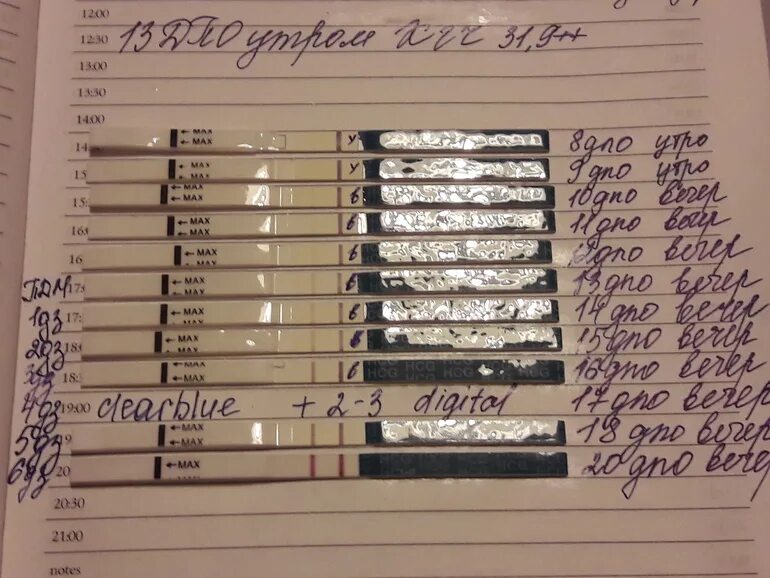 12:00
12:30 13 ДПО утром ХГЧ 31,9
13:00
13:30
14:00
14 ← MAX ← MAX У 8 дпо утро
15 ← MAX ← MAX У 9 дпо утро
15: ← MAX ← MAX в 10 дпо вечер
16: ← MAX ← MAX в 11 дпо вечер
16 ← MAX ← MAX в дпо вечер
ПДМ 17: ← MAX ← MAX в 13 дпо вечер
1дз 17: ← MAX ← MAX в 14 дпо вечер
2дз 18: ← MAX в 15 дпо вечер
3дз 18: ← MAX в HCG HCG HCG 16 дпо вечер
4дз 19:00 clearblue + 2-3 digital 17 дпо вечер
5дз 19 ← MAX 18 дпо вечер
6дз 20 ← MAX 20 дпо вечер
20:30
21:00
notes